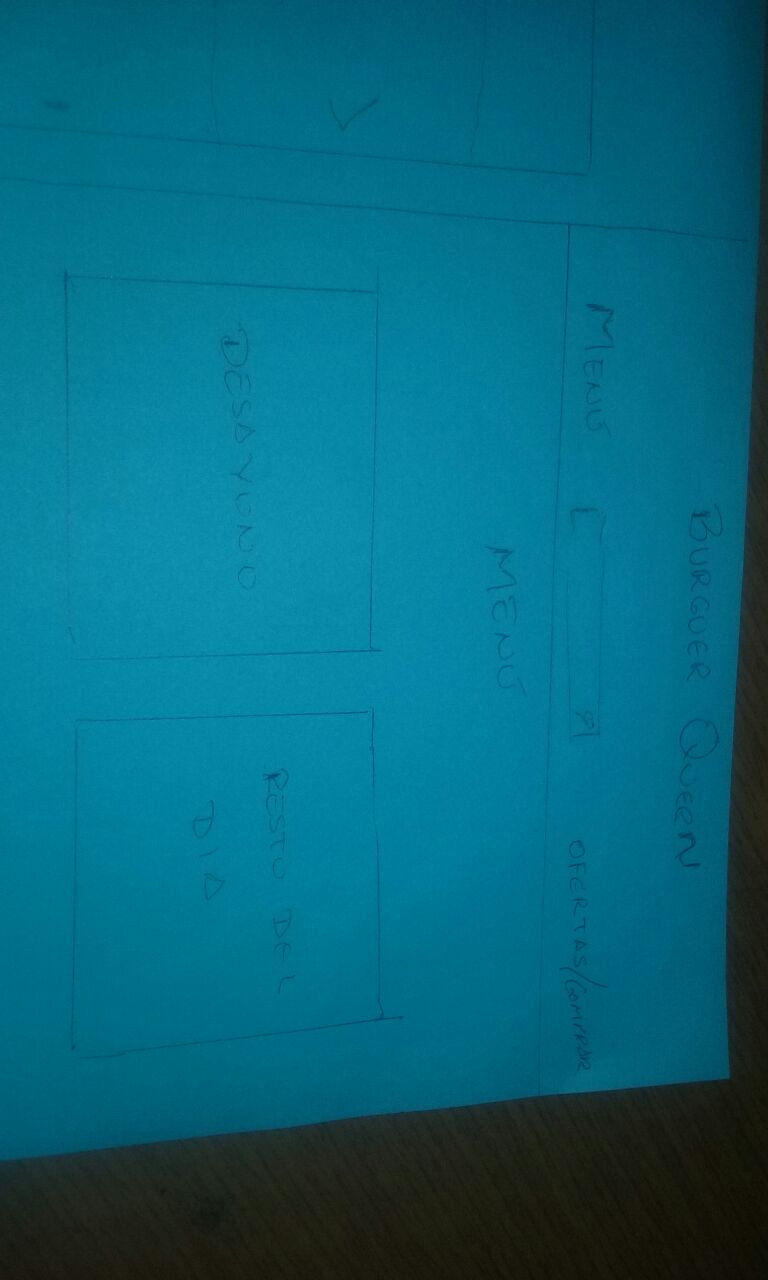 BURGUER QUEEN
MENÚ OFERTAS/COMPRAR
MENÚ
DESAYUNO
RESTO DEL
DIA